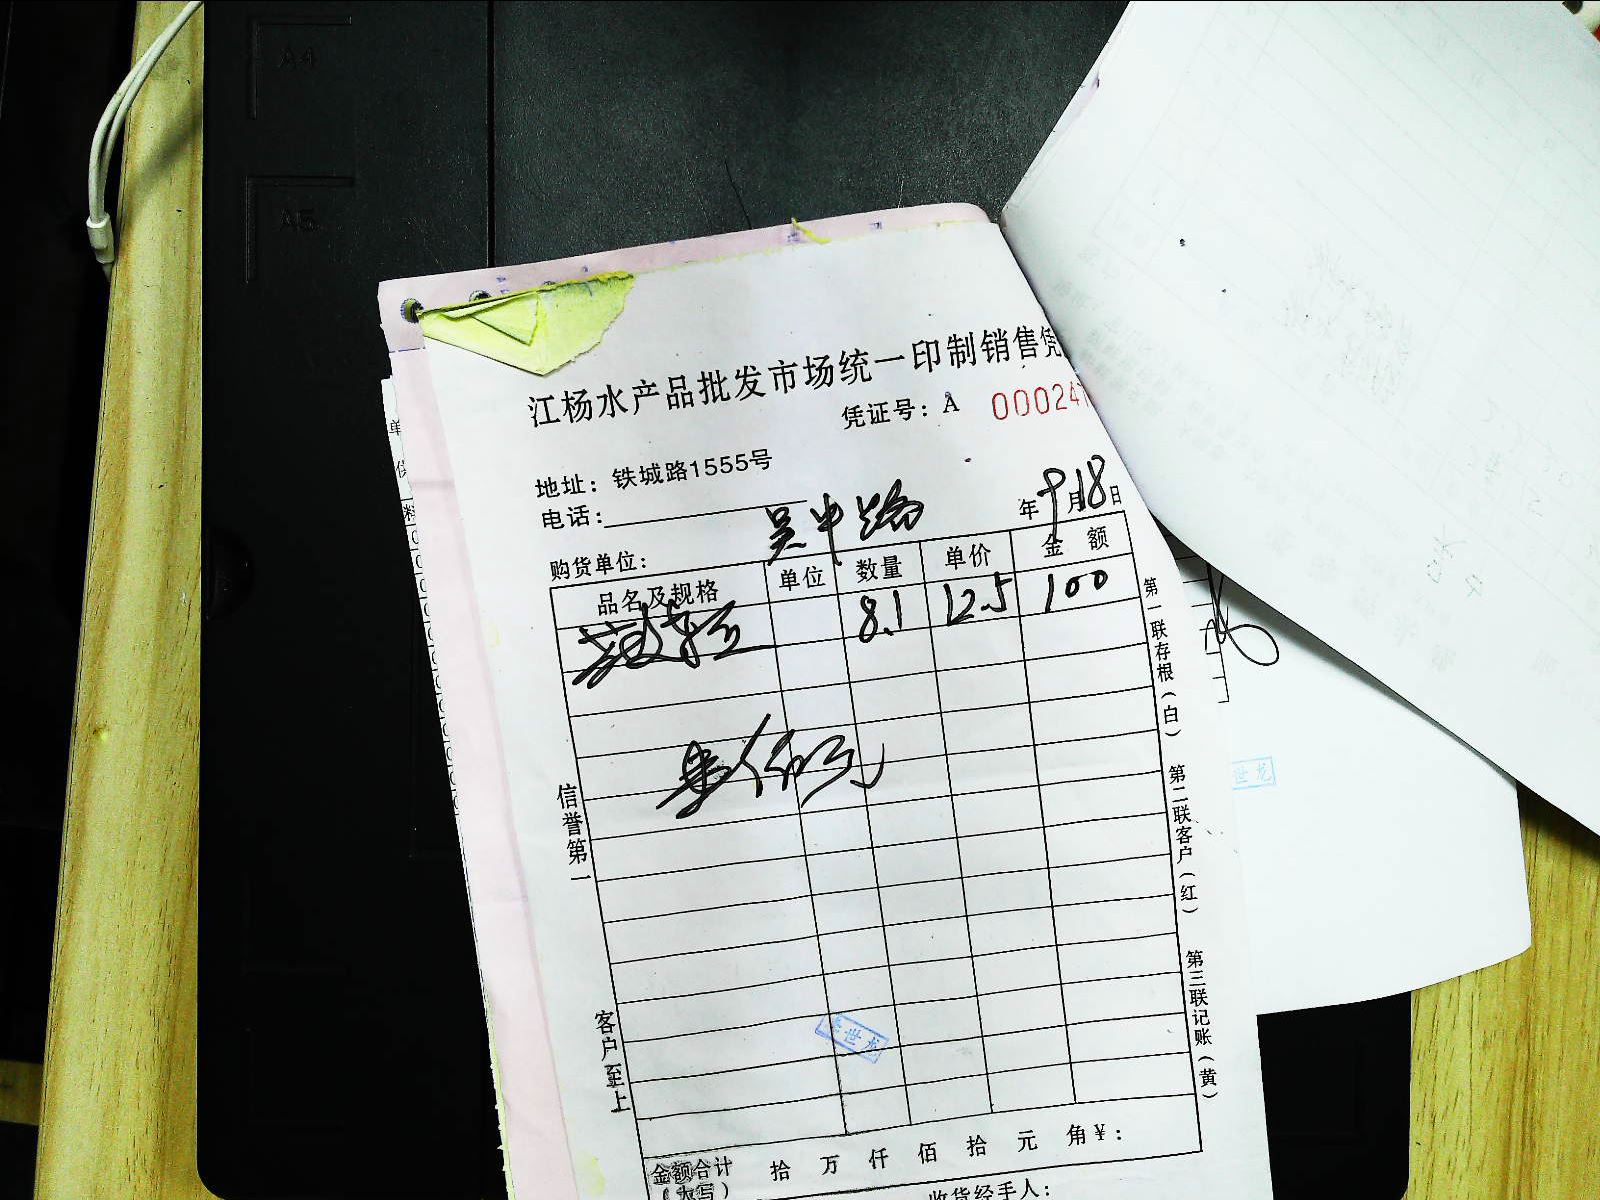 A4
A5
江杨水产品批发市场统一印制销售凭
凭证号：A 00024
地址：铁城路1555号
电话：
购货单位：吴中路 年9月18日
品名及规格 单位 数量 单价 金额
8.1 12.5 100
信誉第一
客户至上
第一联存根（白）
第二联客户（红）
第三联记账（黄）
世龙
世龙
金额合计（大写） 拾 万 仟 佰 拾 元 角 ¥：
收货经手人：